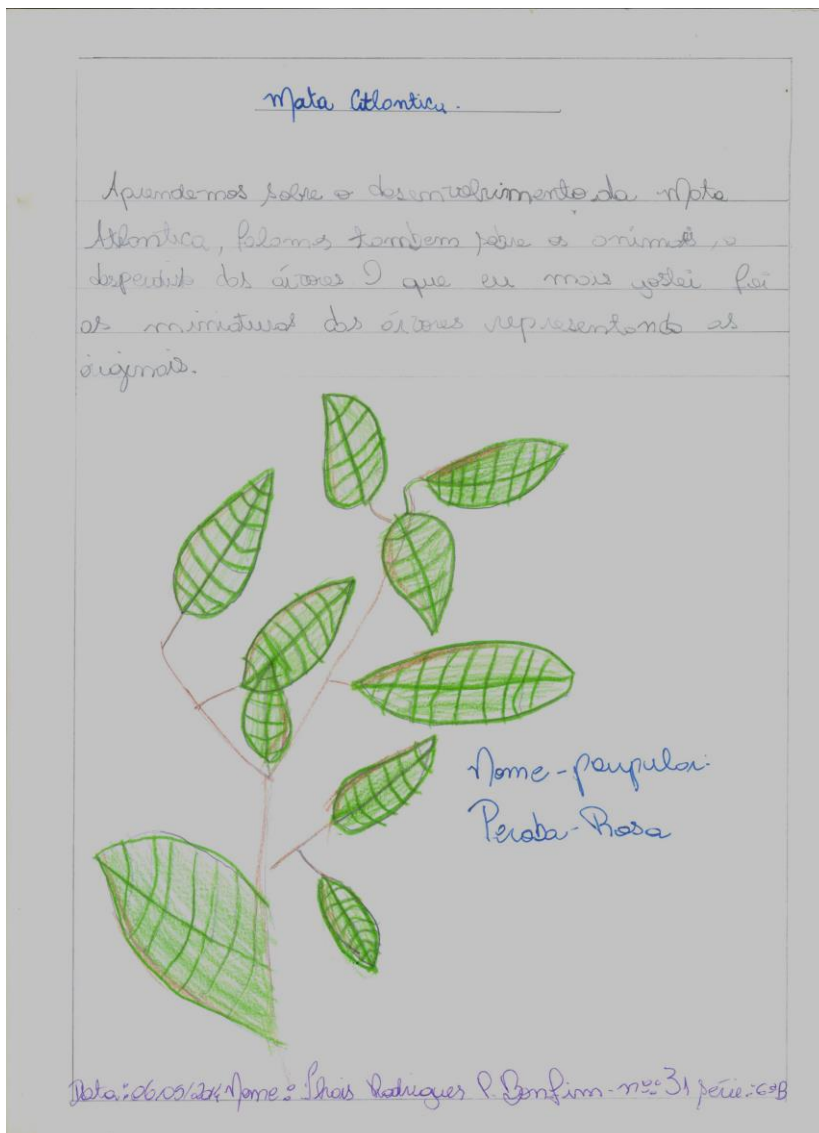 Mata Atlantica.
Aprendemos sobre o desenvolvimento da Mata
Atlantica, falamos tambem sobre os animais, o
desperdicio das árvores O que eu mais gostei foi
as miniaturas das árvores representando as
originais.
Nome-poupular:
Peroba-Rosa
Data: 06/05/2014 Nome: Thais Rodrigues P. Bonfim - nº: 31 série: 6ºB